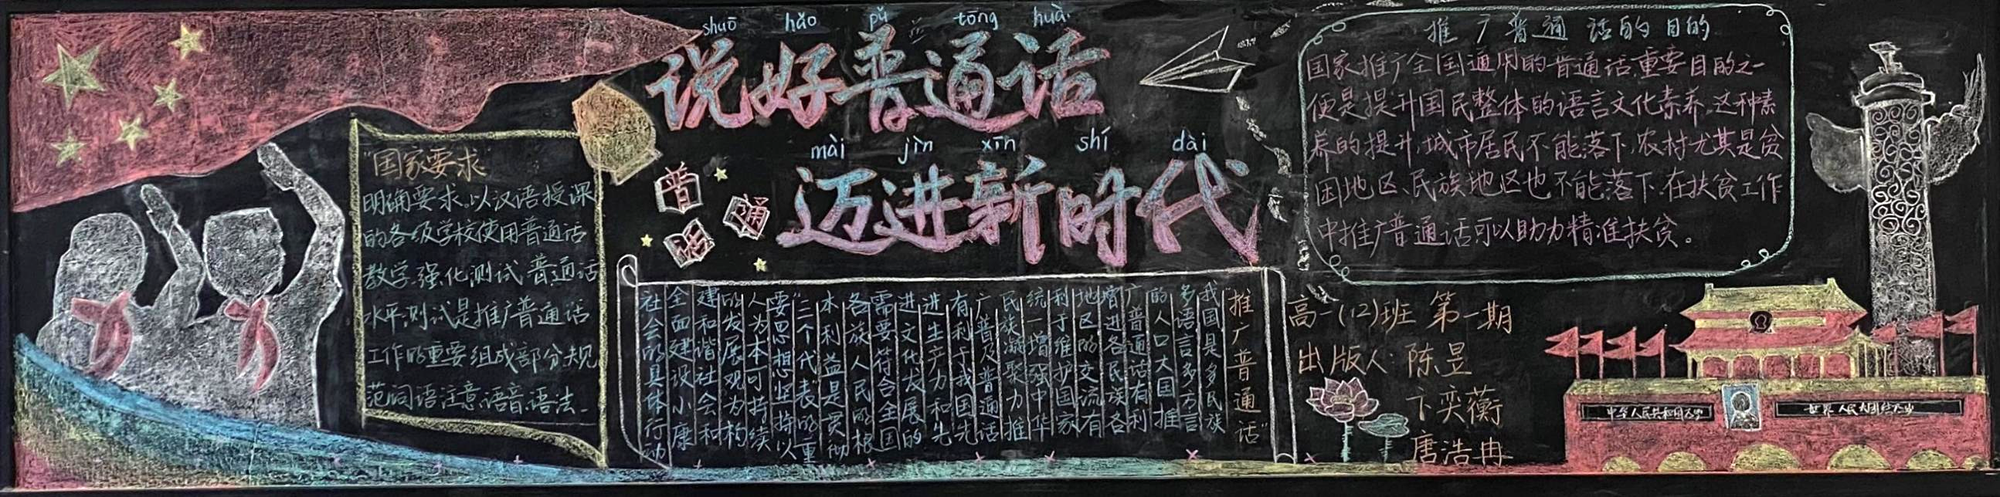 shuō hǎo pǔ tōng huà
说好普通话
mài jìn xīn shí dài
迈进新时代
普
通
明
"国家要求
明确要求,以汉语授课
的各级学校使用普通话
教学,强化测试,普通话
水平测试是推广普通话
工作的重要组成部分规
范词语注意语音语法.
"推广普通话"
我国是多民族
多语言多方言
的人口大国推
广普通话有利
增进各民族各
地区的交流有
利于维护国家
统一增强中华
民族凝聚力推
广普及普通话
有利于我国先
进生产力和先
进文化发展的
需要符合全国
各族人民的根
本利益是贯彻
"三个代表"的重
要思想坚持以
人为本可持续
的发展观为构
建和谐社会和
全面建设小康
社会的具体行动
推广普通话的目的
国家推广全国通用的普通话,重要目的之一
便是提升国民整体的语言文化素养,这种素
养的提升,城市居民不能落下,农村尤其是贫
困地区、民族地区也不能落下.在扶贫工作
中推广普通话可以助力精准扶贫。
高一(12)班 第一期
出版人:陈昱
卞奕蘅
唐浩冉
中华人民共和国万岁
世界人民大团结万岁